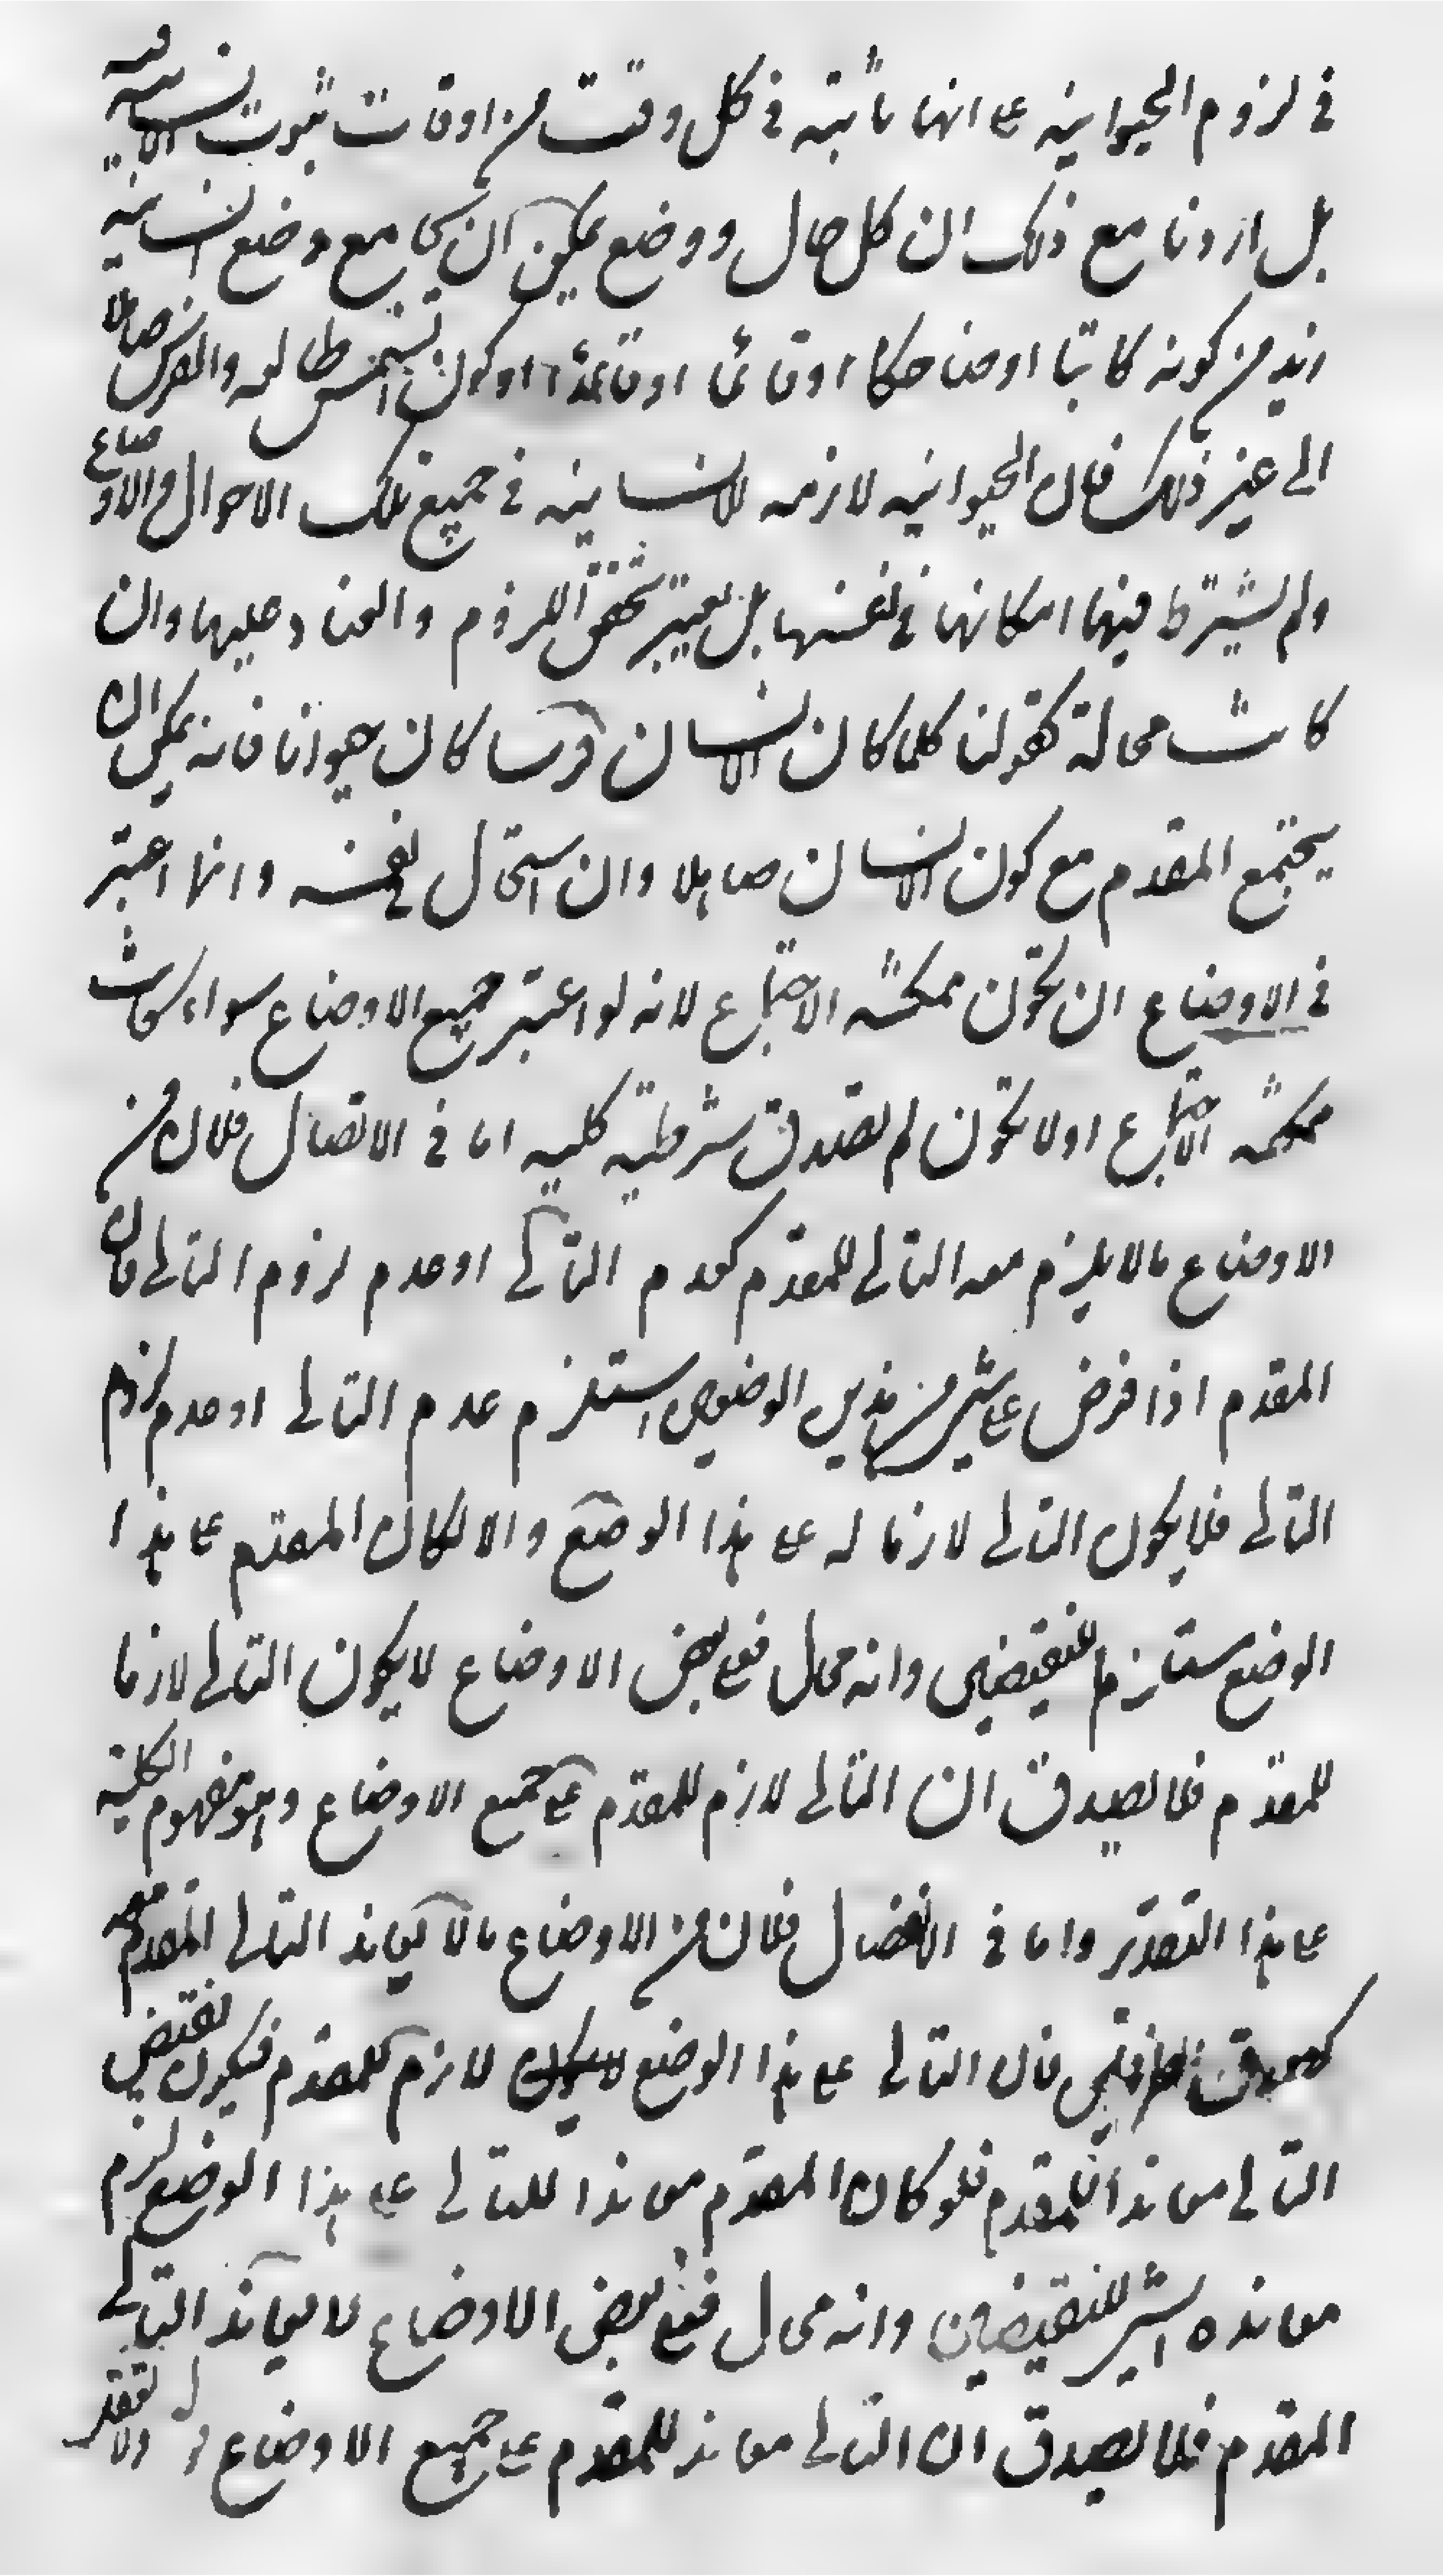 في لزوم الحيوانية على انها ثابتة في كل وقت من اوقات ثبوت الانسانية
بل اردنا مع ذلك ان كل حال ووضع يمكن ان يجامع وضع انسانية
زيد من كونه كاتبا او ضاحكا او قائما او قاعدا او كون الشمس طالعه والفرس صاهلا
الى غير ذلك فان الحيوانيه لازمه للانسانيه في جميع تلك الاحوال والاوضاع
ولم يشترط فيها امكانها في نفسها بل يعتبر تحقق اللزوم والعناد عليها وان
كانت محالة كقولنا كلما كان الانسان فرسا كان حيوانا فانه يمكن ان
يجتمع المقدم مع كون الانسان صاهلا وان استحال في نفسه وانما اعتبر
في الاوضاع ان تكون ممكنة الاجتماع لانه لو اعتبر جميع الاوضاع سواء كانت
ممكنة الاجتماع او لا تكون لم تصدق شرطية كليه اما في الاتصال فلان من
الاوضاع ما لا يلزم معه التالي للمقدم كعدم التالي او عدم لزوم التالي فان
المقدم اذا فرض على شيء من هذين الوضعين استلزم عدم التالي او عدم لزوم
التالي فلا يكون التالي لازما له على هذا الوضع والا لكان المقدم على هذا
الوضع مستلزما للنقيضين وانه محال فعلى بعض الاوضاع لا يكون التالي لازما
للمقدم فلا يصدق ان التالي لازم للمقدم على جميع الاوضاع وهو مفهوم الكلية
على هذا التقدير واما في الانفصال فلان من الاوضاع ما لا يعاند التالي المقدم معه
كصدق الطرفين فان التالي على هذا الوضع لازم للمقدم فيكون نقيض
التالي معاندا للمقدم فلو كان المقدم معاندا للتالي على هذا الوضع لزم
معانده الشيء للنقيضين وانه محال فعلى بعض الاوضاع لا يعاند التالي
المقدم فلا يصدق ان التالي معاند للمقدم على جميع الاوضاع